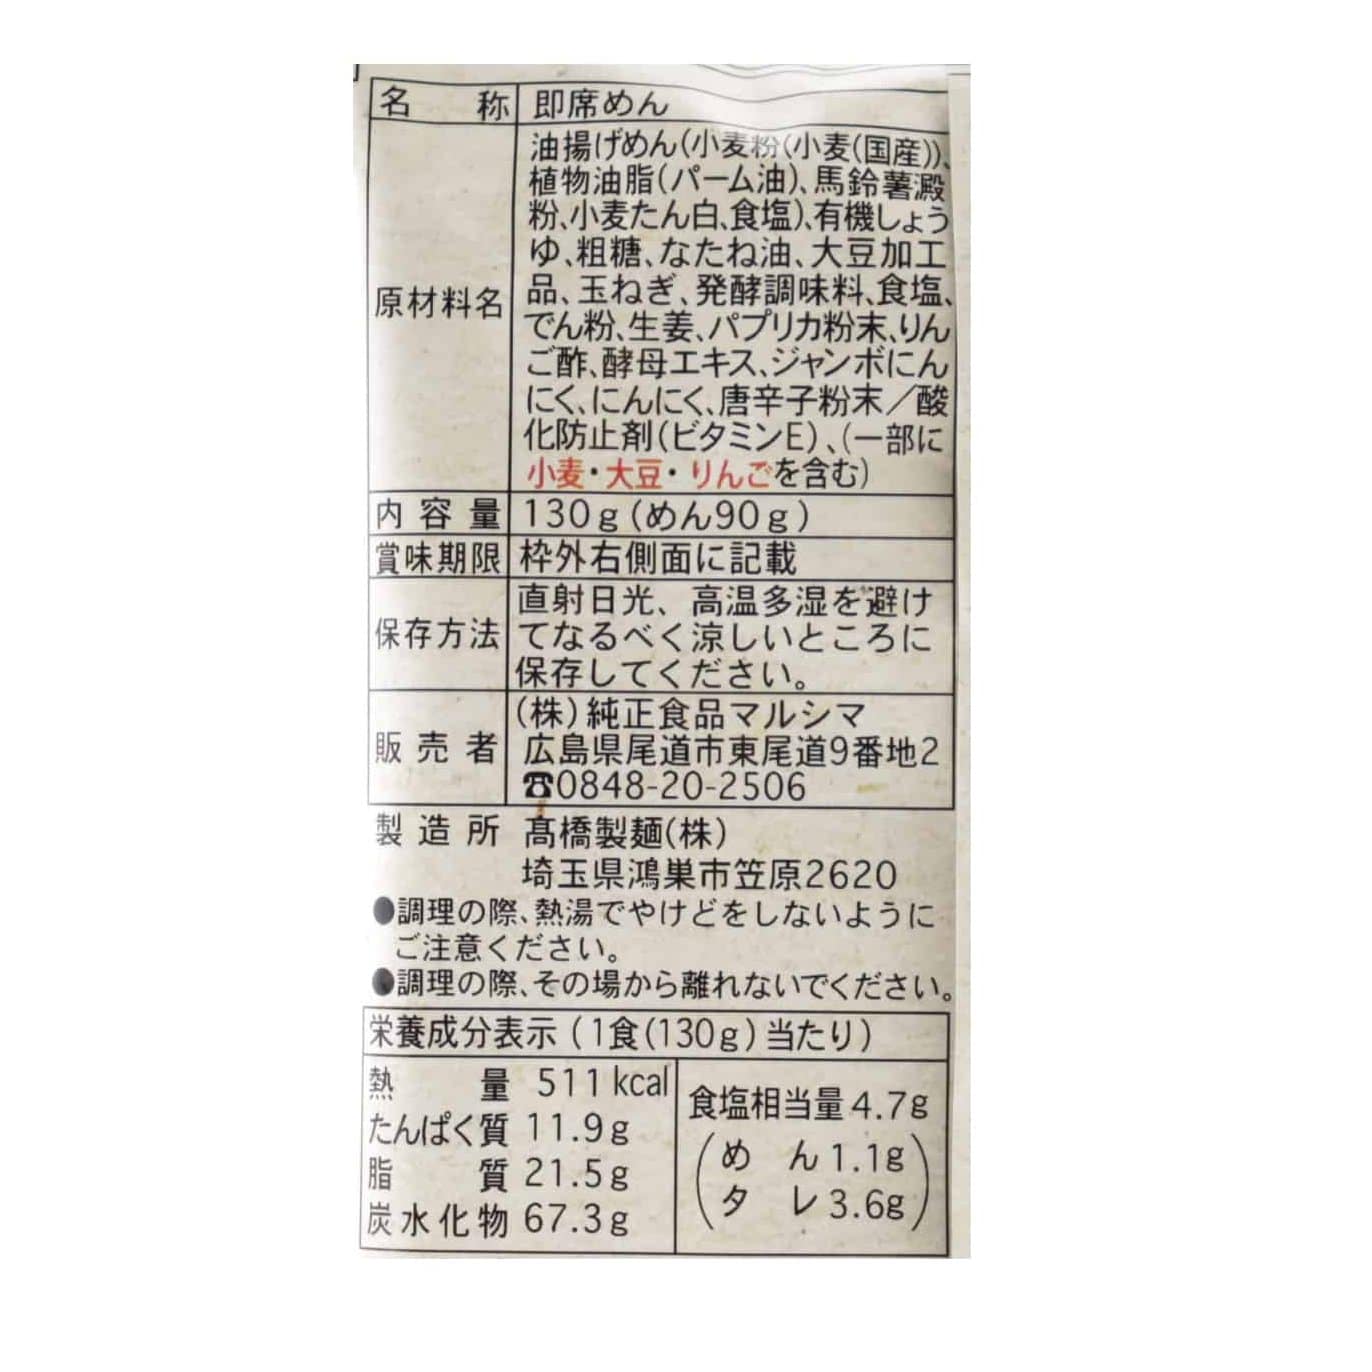 名称 即席めん
原材料名
油揚げめん(小麦粉(小麦(国産))、
植物油脂(パーム油)、馬鈴薯澱
粉、小麦たん白、食塩)、有機しょう
ゆ、粗糖、なたね油、大豆加工
品、玉ねぎ、発酵調味料、食塩、
でん粉、生姜、パプリカ粉末、りん
ご酢、酵母エキス、ジャンボにん
にく、にんにく、唐辛子粉末／酸
化防止剤(ビタミンE)、(一部に
小麦・大豆・りんごを含む)
内容量 130g(めん90g)
賞味期限 枠外右側面に記載
保存方法
直射日光、高温多湿を避け
てなるべく涼しいところに
保存してください。
販売者
(株)純正食品マルシマ
広島県尾道市東尾道9番地2
☎0848-20-2506
製造所 髙橋製麺(株)
埼玉県鴻巣市笠原2620
●調理の際、熱湯でやけどをしないように
ご注意ください。
●調理の際、その場から離れないでください。
栄養成分表示(1食(130g)当たり)
熱量 511kcal
たんぱく質 11.9g
脂質 21.5g
炭水化物 67.3g
食塩相当量4.7g
(めん1.1g
タレ3.6g)